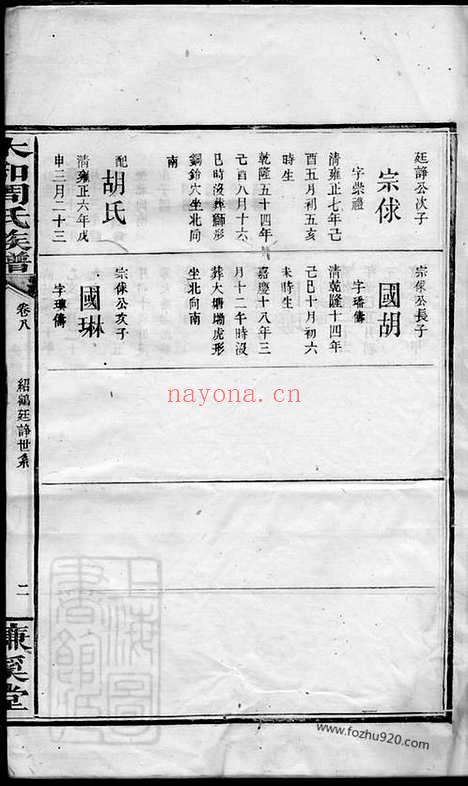 廷諍公次子
宗俅
字崇禮
清雍正七年己
酉五月初五亥
時生
乾隆五十四年
己酉八月十六
巳時沒葬獅形
銅鈴穴坐北向
南
配
胡氏
清雍正六年戊
申三月二十三
宗俅公長子
國胡
字璠儔
清乾隆十四年
己巳十月初六
未時生
嘉慶十八年三
月十二午時沒
葬大塘塝虎形
坐北向南
宗俅公次子
國琳
字璋儔
太和周氏族譜
卷八
紹鶴廷諍世系
二
濂溪堂
上海圖書館藏
nayona.cn
www.fozhu920.com